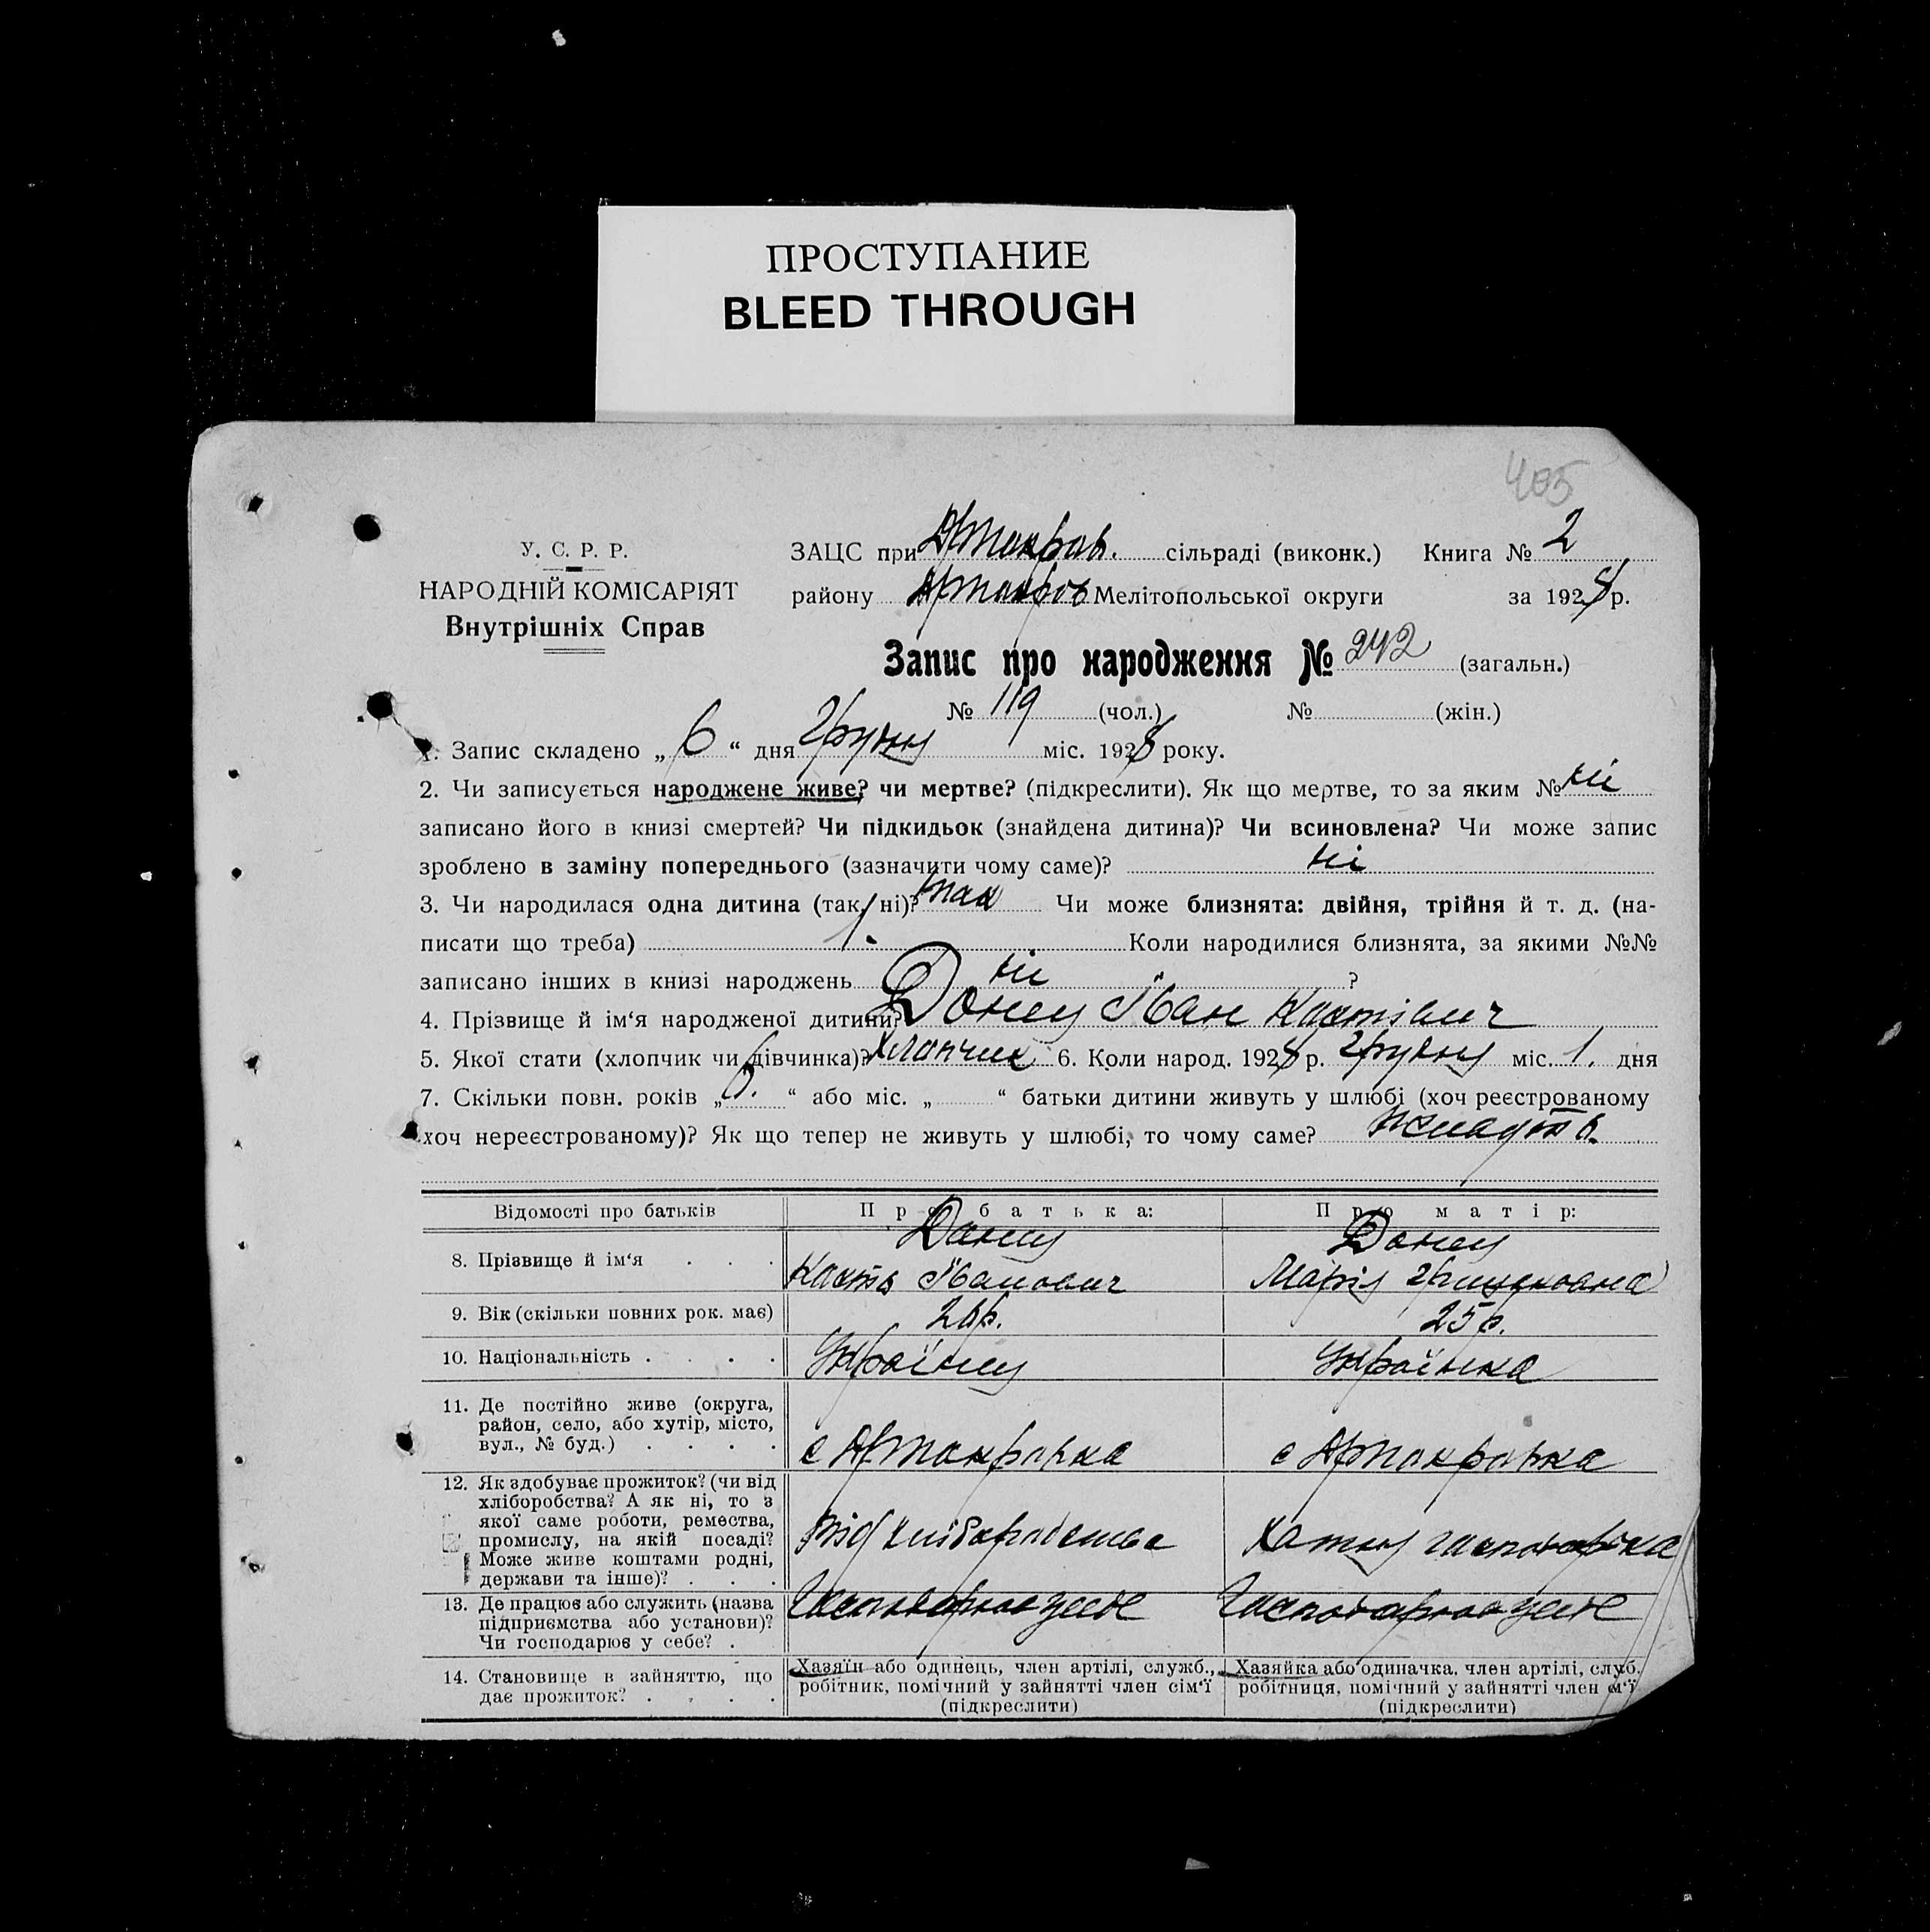 ПРОСТУПАНИЕ
BLEED THROUGH
405
У. С. Р. Р.
НАРОДНІЙ КОМІСАРІЯТ
Внутрішніх Справ
ЗАЦС при сільраді (виконк.) Книга № 2
району Мелітопольської округи за 1928 р.
Запис про народження № 242 (загальн.)
№ 119 (чол.) № (жін.)
1. Запис складено „ 6 “ дня грудня міс. 1928 року.
2. Чи записується народжене живе? чи мертве? (підкреслити). Як що мертве, то за яким № ні
записано його в книзі смертей? Чи підкидьок (знайдена дитина)? Чи всиновлена? Чи може запис
зроблено в заміну попереднього (зазначити чому саме)? ні
3. Чи народилася одна дитина (так, ні)? так Чи може близнята: двійня, трійня й т. д. (на-
писати що треба) Коли народилися близнята, за якими №№
записано інших в книзі народжень ні ?
4. Прізвище й ім‘я народженої дитини? Донец Іван
5. Якої стати (хлопчик чи дівчинка)? хлопчик 6. Коли народ. 1928 р. грудня міс. 1. дня
7. Скільки повн. років „ 6. “ або міс. „ “ батьки дитини живуть у шлюбі (хоч реєстрованому
хоч нереєстрованому)? Як що тепер не живуть у шлюбі, то чому саме?
Відомості про батьків Про батька: Про матір:
8. Прізвище й ім‘я . . . Донец Кость Іванович Донец Марія
9. Вік (скільки повних рок. має) 26р. 25р.
10. Національність . . . . Українец Українка
11. Де постійно живе (округа,
район, село, або хутір, місто,
вул., № буд.) . . . .
12. Як здобуває прожиток? (чи від
хліборобства? А як ні, то з
якої саме роботи, ремества,
промислу, на якій посаді?
Може живе коштами родні,
держави та інше)? . . .
від хліборобства
13. Де працює або служить (назва
підприємства або установи)?
Чи господарює у себе? .
14. Становище в зайняттю, що
дає прожиток? . . . .
Хазяїн або одинець, член артілі, служб.,
робітник, помічний у зайнятті член сім‘ї
(підкреслити)
Хазяйка або одиначка, член артілі, служб.
робітниця, помічний у зайнятті член см‘ї
(підкреслити)